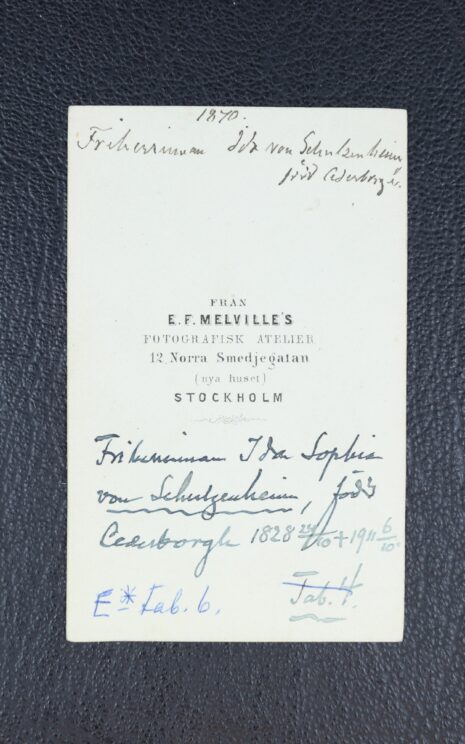 1870.
Friherrinnan Ida von Schulzenheim
född Cederborg
FRÅN
E. F. MELVILLE'S
FOTOGRAFISK ATELIER
12, Norra Smedjegatan
(nya huset)
STOCKHOLM
Friherrinnan Ida Sophia
von Schulzenheim, född
Cederborgh 1828 24/10 + 1911 6/10.
Tab. 4.
E* Tab. 6.